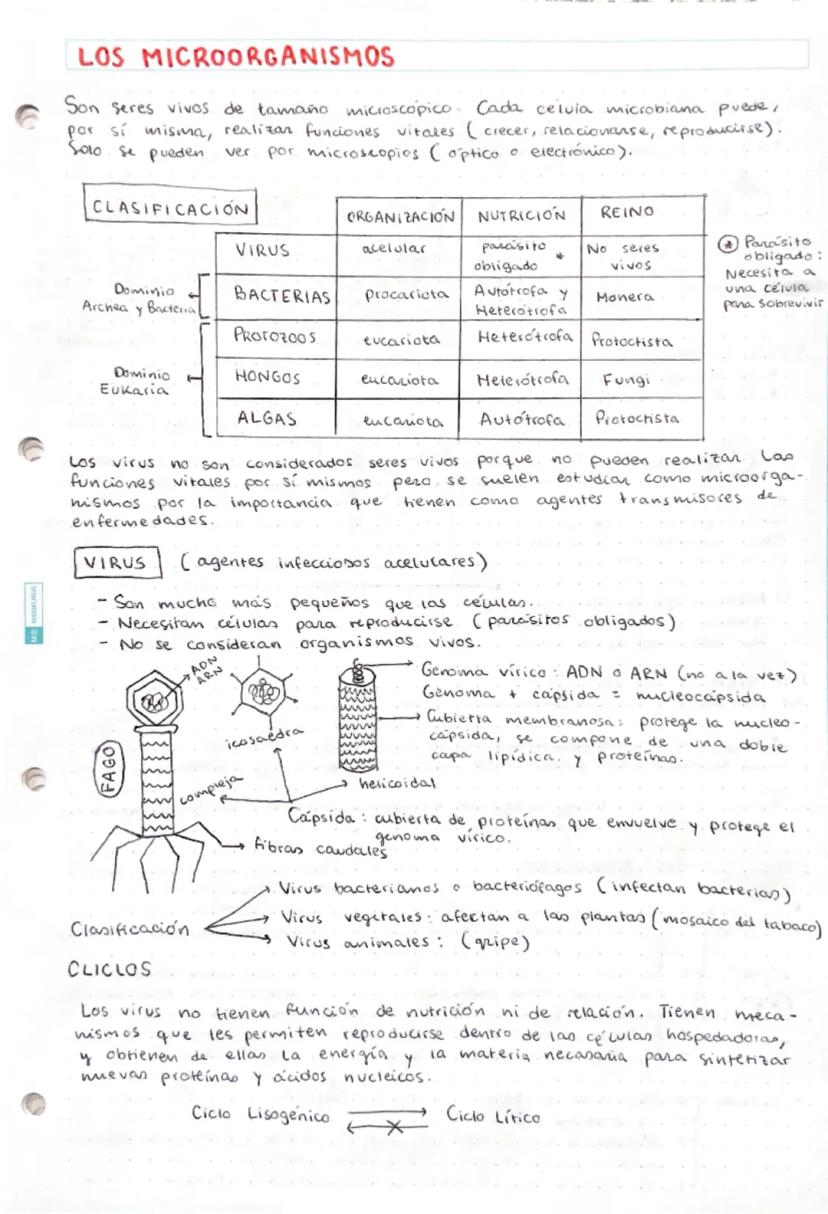 LOS MICROORGANISMOS
Son seres vivos de tamaño microscópico. Cada célula microbiana puede,
por sí misma, realizar funciones vitales (crecer, relacionarse, reproducirse).
Solo se pueden ver por microscopios (óptico o electrónico).
CLASIFICACIÓN
ORGANIZACIÓN NUTRICIÓN REINO
VIRUS acelular parásito obligado * No seres vivos
BACTERIAS procariota Autótrofa y Heterótrofa Monera
PROTOZOOS eucariota Heterótrofa Protoctista
HONGOS eucariota Heterótrofa Fungi
ALGAS eucariota Autótrofa Protoctista
Dominio
Archea y Bacteria
Dominio
Eukaria
* Parásito
obligado:
Necesita a
una célula
para sobrevivir
Los virus no son considerados seres vivos porque no pueden realizar las
funciones vitales por sí mismos pero se suelen estudiar como microorga-
nismos por la importancia que tienen como agentes transmisores de
enfermedades.
VIRUS (agentes infecciosos acelulares)
- Son mucho más pequeños que las células.
- Necesitan células para reproducirse (parásitos obligados)
- No se consideran organismos vivos.
ADN
ARN
FAGO
icosaedra
compleja
helicoidal
Genoma vírico: ADN o ARN (no a la vez)
Genoma + cápsida = nucleocápsida
Cubierta membranosa: protege la nucleo-
cápsida, se compone de una doble
capa lipídica y proteínas.
Cápsida: cubierta de proteínas que envuelve y protege el
genoma vírico.
fibras caudales
Clasificación
Virus bacterianos o bacteriófagos (infectan bacterias)
Virus vegetales: afectan a las plantas (mosaico del tabaco)
Virus animales: (gripe)
CLICLOS
Los virus no tienen función de nutrición ni de relación. Tienen meca-
nismos que les permiten reproducirse dentro de las células hospedadoras,
y obtienen de ellas la energía y la materia necesaria para sintetizar
nuevas proteínas y ácidos nucleicos.
Ciclo Lisogénico Ciclo Lítico